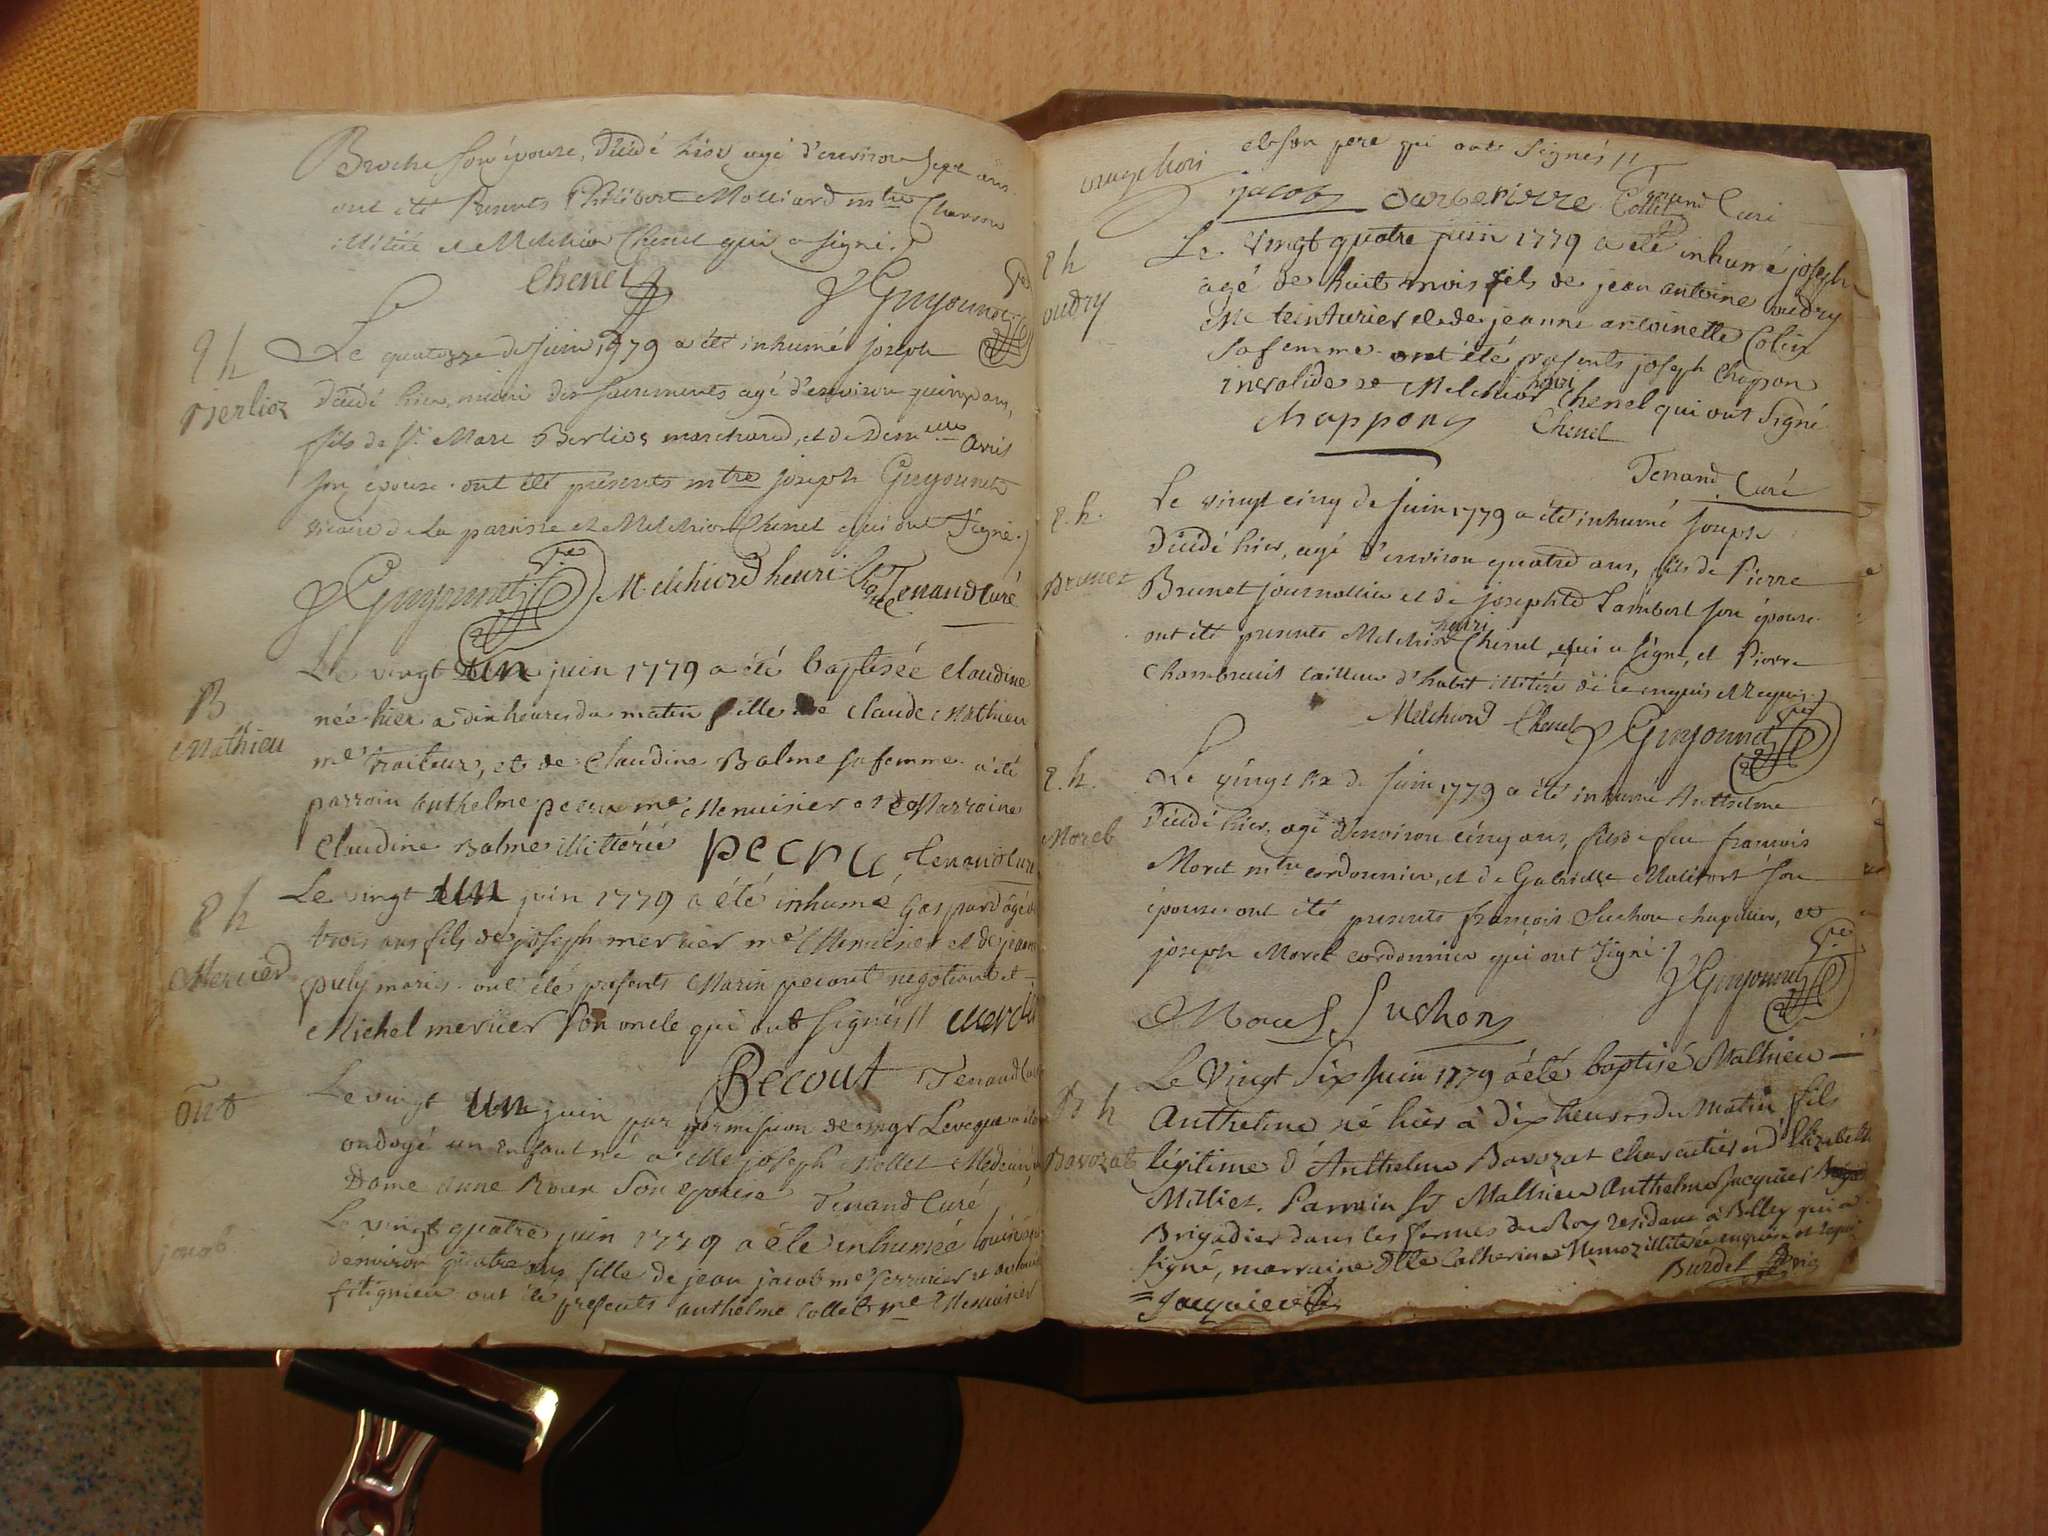 Broche son épouse, décédé hier agé d'environ sept ans
ont été presents Philibert Molliard mtre Charron
illitéré et Melchior Chenel qui a signé.
Chenel Guyonnet
Le quatorze de juin 1779 a été inhumé joseph
P h
Berlioz
décédé hier, muni des sacrements agé d'environ quinze ans,
fils de Sr Marc Berlioz marchand, et de Demelle
son épouse. ont été présents mtre joseph Guyonnet
vicaire de la paroisse et Melchior Chenel qui ont signé.
Guyonnet Melchiord henri Tenand Curé
Le vingt un juin 1779 a été baptisée Claudine
B
Mathieu
née hier a dix heures du matin fille de Claude Mathieu
me traiteur, et de Claudine Balme sa femme a été
parrain Anthelme pecru me Menuisier et Marraine
Claudine Balme illittéré pecru Tenand Curé
Le vingt un juin 1779 a été inhumé Gaspard âgé de
P h
Mercier
trois ans fils de joseph mercier me Menuisier et de jeanne
puly mariés. ont étés présents Marin pecout negotiant et
Michel mercier son oncle qui ont signés //
Becout Tenand Curé
Le vingt un juin par permission de mgr Leveque a été
ond
ondoyé un enfant né a Me joseph Mollet Medecin,
Dame anne Roux son epouse Tenand Curé
Le vingt quatre juin 1779 a été inhumée
Jacob
denviron quatre ans fille de jean jacob me serrurier et
fitignieu ont été présents anthelme Collet me Menuisier
et son pere qui ont signés //
jacob Collet Tenand Curé
Le vingt quatre juin 1779 a été inhumé joseph
P h
oudry
agé de huit mois fils de jean antoine oudry
Me teinturier et de jeanne antoinette Colin
sa femme. ont été présents joseph Chappon
invalide et Melchior henri Chenel qui ont signé
chappon Chenel
Tenand Curé
Le vingt cinq de juin 1779 a été inhumé joseph
P. h.
Brunet
décédé hier, agé d'environ quatre ans, fils de Pierre
Brunet journallier et de josephte Lambert son épouse
ont été presents Melchior henri Chenel, qui a signé, et Pierre
tailleur d'habit illitéré de ce enquis et requis.
Melchiord Chenel Guyonnet
Le vingt six de juin 1779 a été inhumé Anthelme
P. h.
Morel
décédé hier, agé d'environ cinq ans, fils de feu francois
Morel mtre cordonnier, et de Gabrielle son
épouse. ont été presents françois Suchon chapellier, et
joseph Morel cordonnier qui ont signé.
Morel Suchon Guyonnet
Le Vingt Six juin 1779 a été baptisé Mathieu
B h
Bavozat
Anthelme né hier à dix heures du Matin fils
légitime d'Anthelme Bavozat et d'Elizabeth
Milliet. Parrain Sr Mathieu Anthelme Jacquier
Brigadier dans les fermes du Roy résidant à Belley qui a
signé, marraine Dlle Catherine illitérée enquise et requise
Burdet
Jacquier